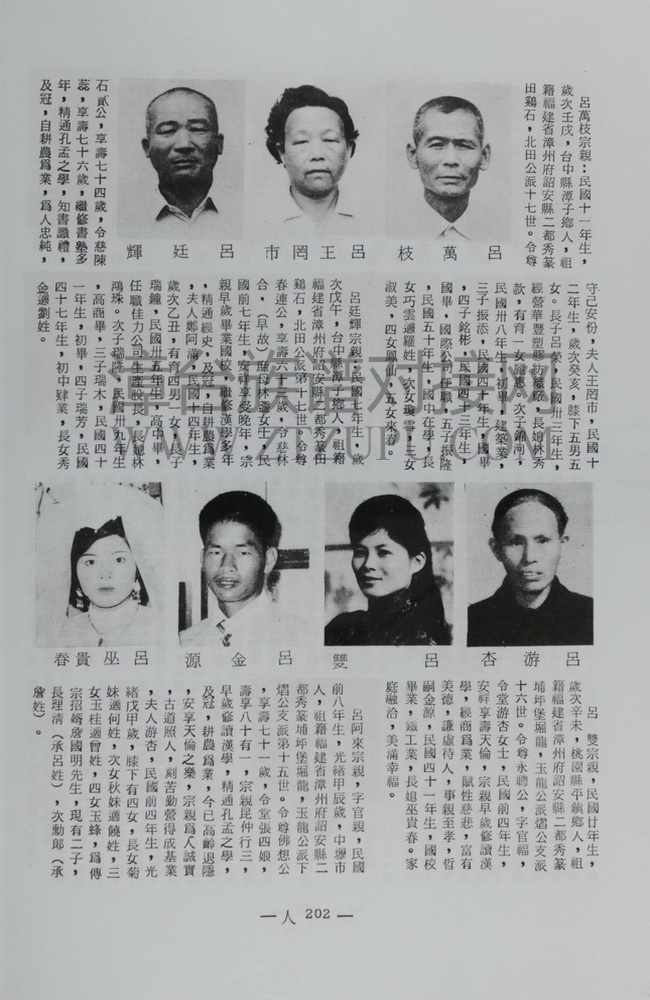 呂萬枝宗親:民國十一年生,
歲次壬戌,台中縣潭子鄉人,祖
籍福建省漳州府詔安縣二都秀篆
田鷄石,北田公派十七世。令尊
石貳公,享壽七十四歲,令慈陳
蕊,享壽七十六歲,繼修書塾多
年,精通孔孟之學,知書識禮,
及冠,自耕農爲業,爲人忠純,
呂萬枝
呂王罔市
呂廷輝
守己安份,夫人王罔市,民國十
二年生,歲次癸亥,膝下五男五
女。長子呂榮,民國卅三年生,
經營華豐塑膠紡織廠,長媳林秀
款,有育一女麗惠。次子錦河,
民國卅八年生,初畢,建築業,
三子振添,民國四十年生,國畢
,四子銘彬,民國四十三年生,
國畢,國際公司任職,五子振隆
,民國五十年生,國中在學,長
女巧雲適羅姓,次女瓊雲,三女
淑美,四女鳳仙,五女來春。
呂廷輝宗親:民國七年生,歲
次戊午,台中縣潭子鄉人,祖籍
福建省漳州府詔安縣二都秀篆田
鷄石,北田公派第十七世。令尊
春連公,享壽六十三歲,令慈林
合,(早故)庶母林盞女士,民
國前七年生,安祥享受晚年,宗
親早歲畢業國校,繼修漢學多年
,精通經史,及冠,自耕農爲業
,夫人鄭阿滿,民國十四年生,
歲次乙丑,有育四男一女,長子
瑞鐘,民國卅五年生,高中畢,
任職佳力公司生產股長,長媳林
鴻珠。次子瑞隆,民國卅九年生
,高商畢,三子瑞木,民國四十
一年生,初畢,四子瑞芳,民國
四十七年生,初中肄業,長女秀
金適劉姓。
呂游杏
呂雙
呂金源
呂巫貴春
呂 雙宗親,民國廿年生,
歲次辛未,桃園縣平鎮鄉人,祖
籍福建省漳州府詔安縣二都秀篆
埔坪堡堀龍,玉龍公派熠公支派
十六世。令尊永聘公,字官福,
令堂游杏女士,民國前四年生,
安祥享壽天倫,宗親早歲修讀漢
學,經商爲業,賦性慈悲,富有
美德,謙虛待人,事親至孝,哲
嗣金源,民國四十一年生,國校
畢業,鐵工業,長媳巫貴春。家
庭融洽,美滿幸福。
呂阿來宗親,字官親,民國
前八年生,光緒甲辰歲,中壢市
人,祖籍福建省漳州府詔安縣二
都秀篆埔坪堡堀龍,玉龍公派下
熠公支派第十五世。令尊佛想公
,享壽七十一歲,令堂張四娘,
壽享八十有一,宗親昆仲行三,
早歲修讀漢學,精通孔孟之學,
及冠,耕農爲業,今已高齡退隱
,安享天倫之樂,宗親爲人誠實
,古道照人,刻苦勤營得成基業
,夫人游杏,民國前四年生,光
緒戊申歲,膝下有四女,長女菊
妹適何姓,次女秋妹適饒姓,三
女玉桂適曾姓,四女玉蜂,爲傳
宗招婿詹國明先生,現有二子,
長理清(承呂姓),次勳郎(承
詹姓)。
—人 202—